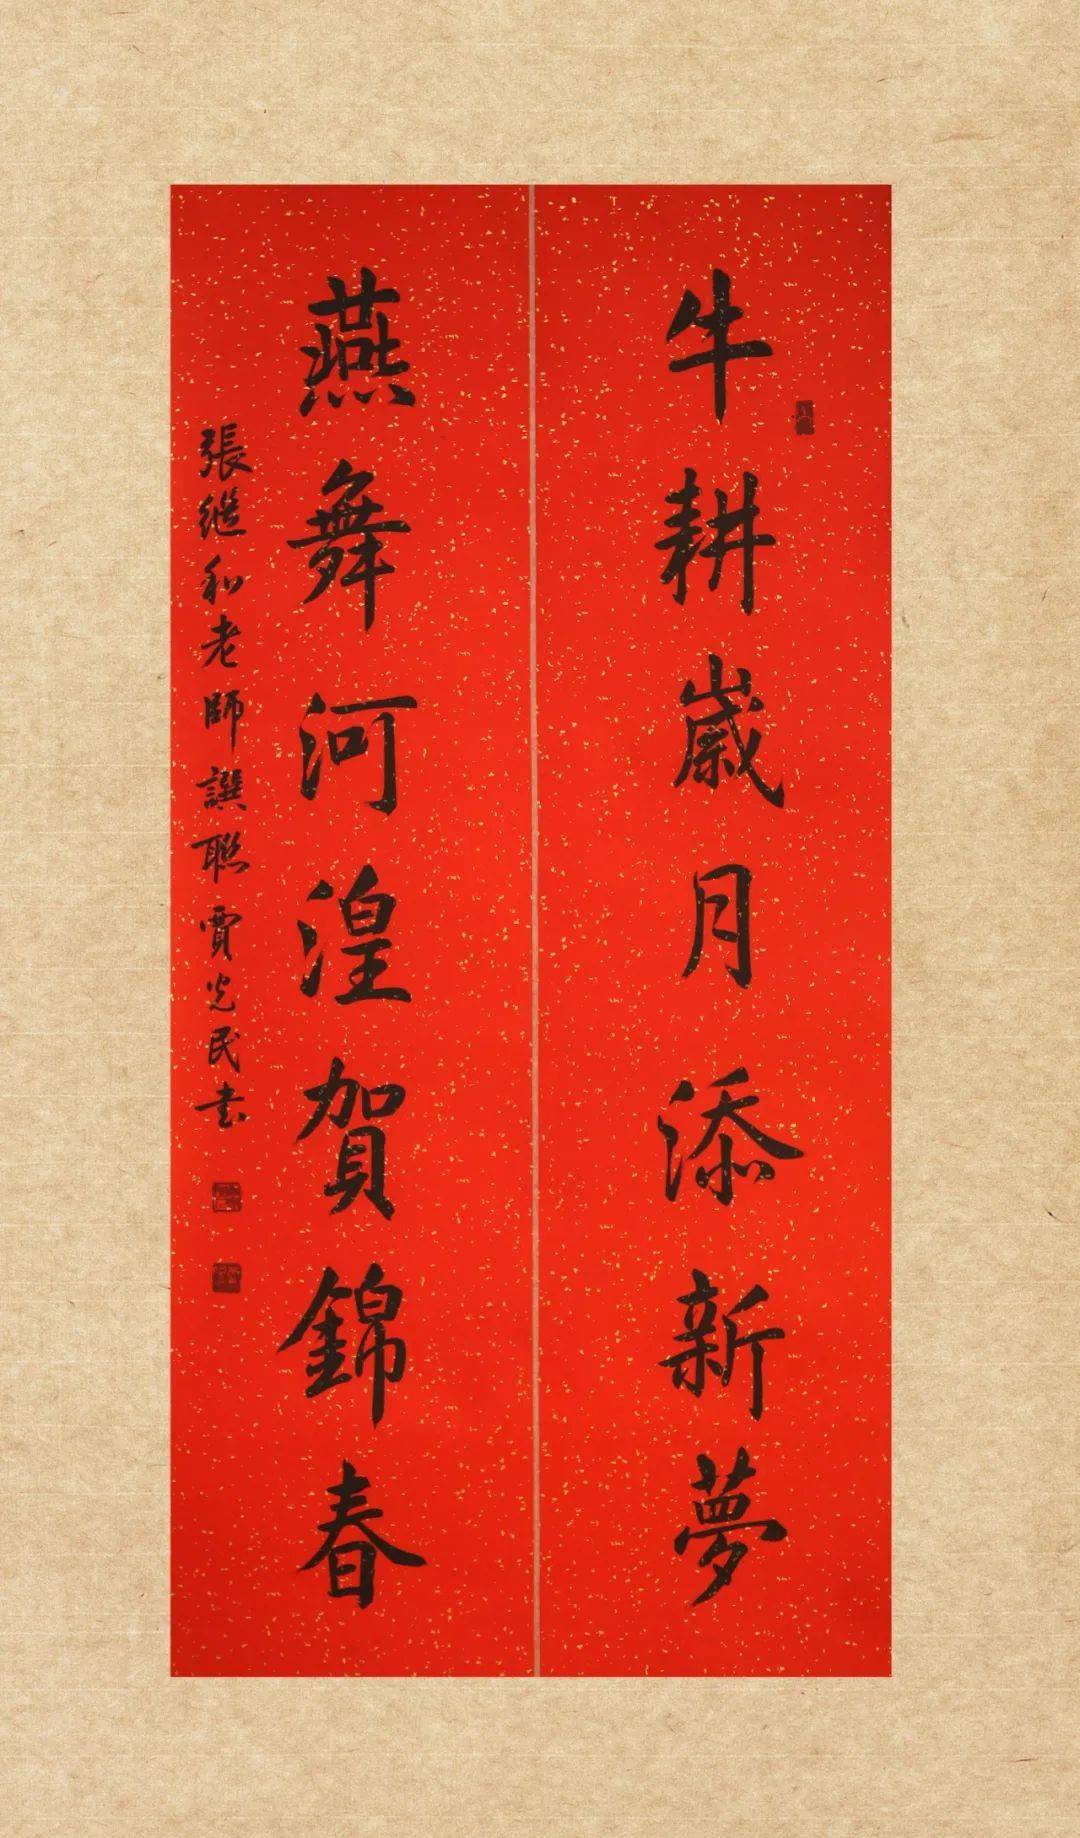 牛耕歲月添新夢
燕舞河湟賀錦春
張繼和老師譔聯賈光民书